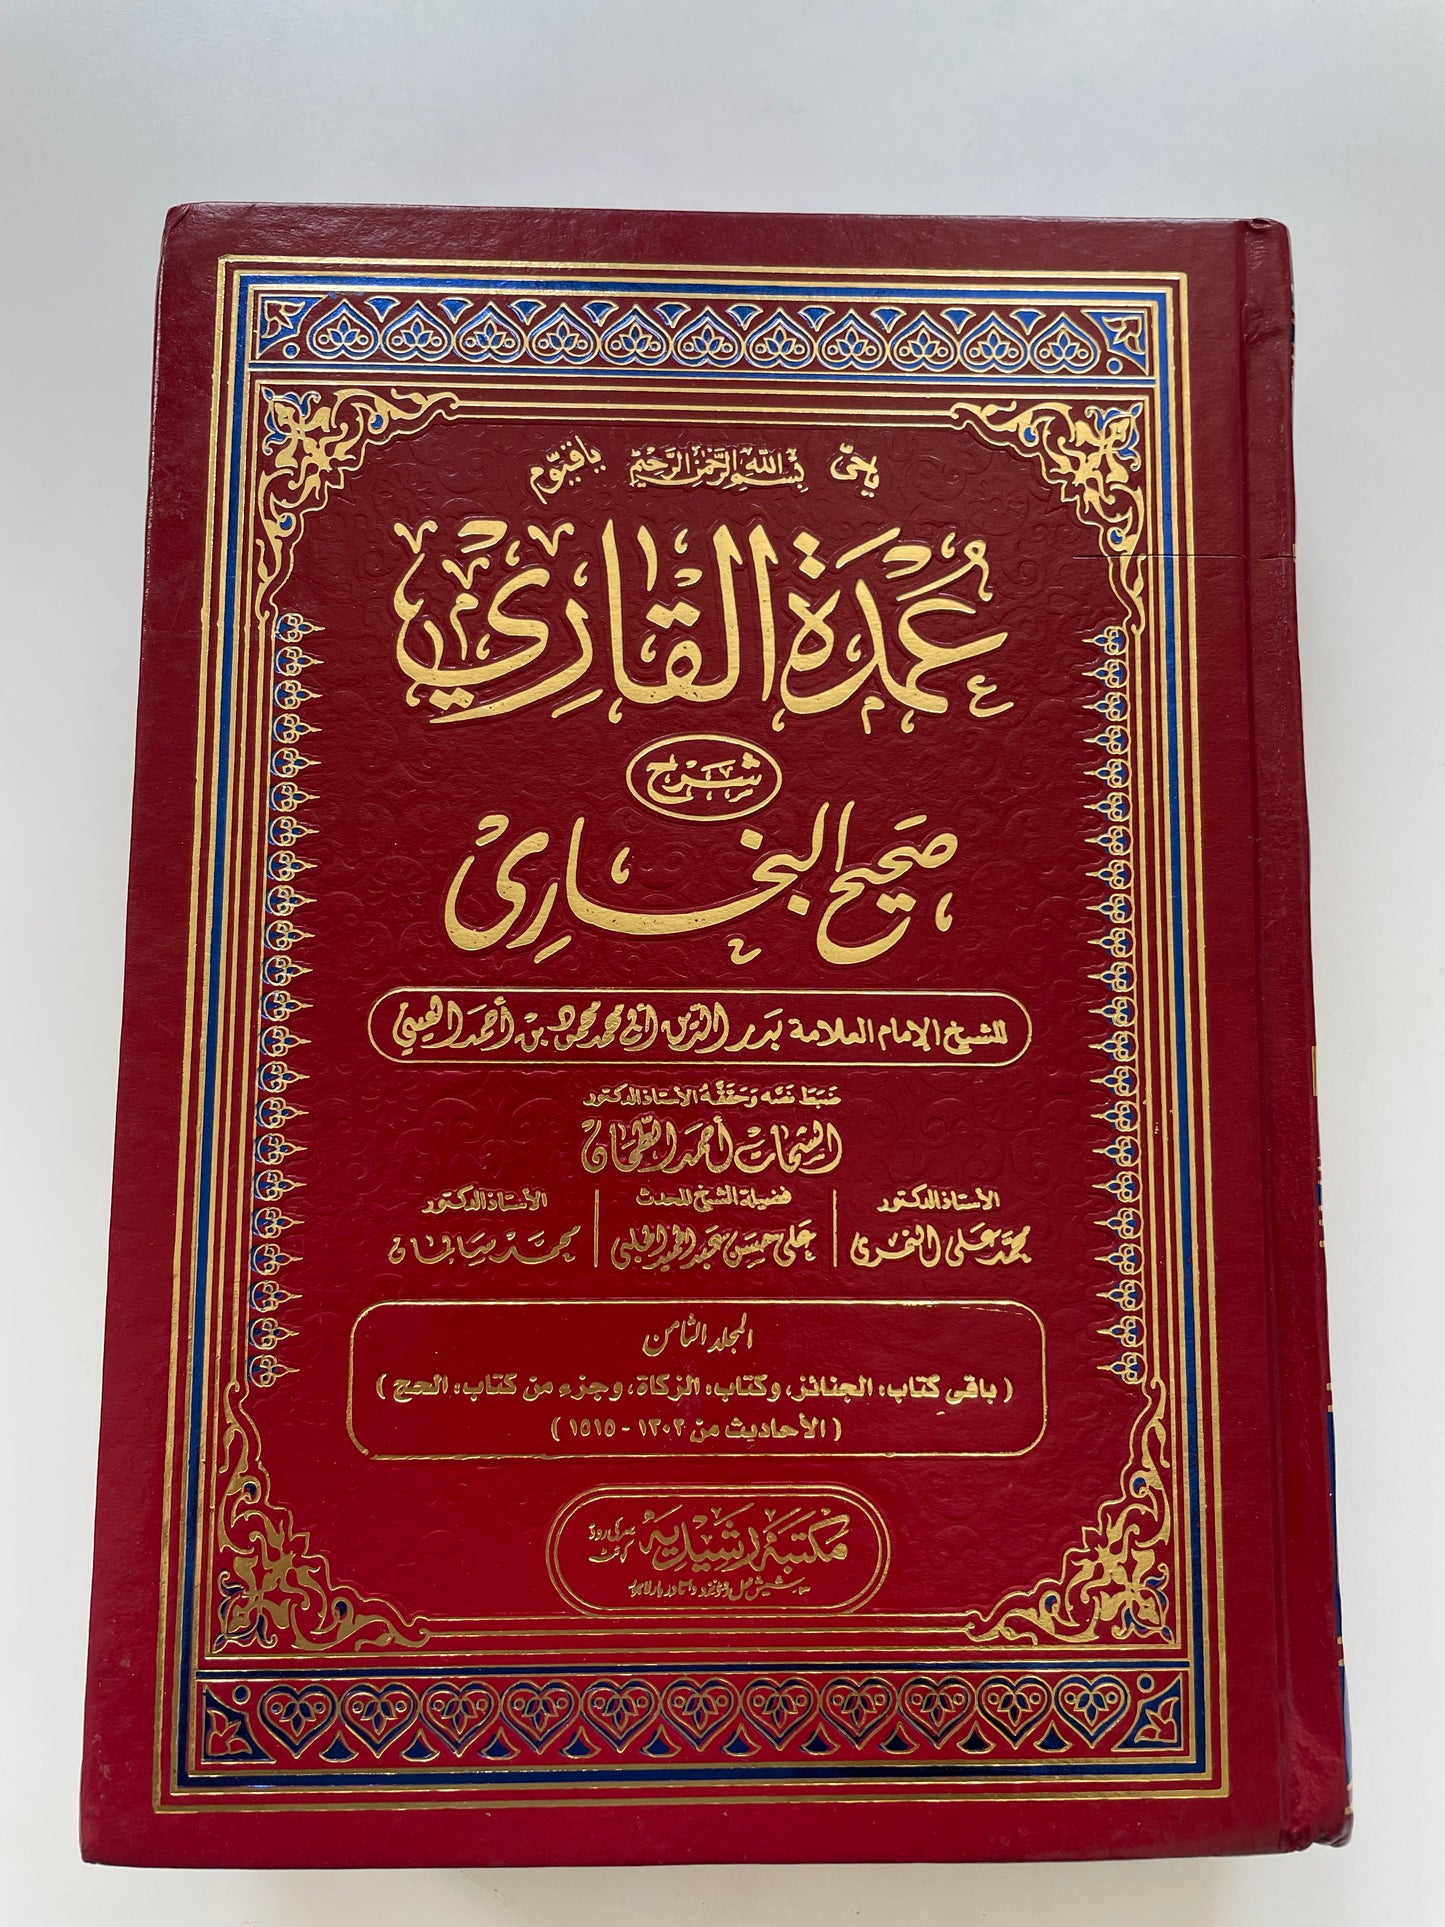 ياحي بسم الله الرحمن الرحيم ياقيوم
عُمدَة القَاري
شرح
صحيح البخاري
للشيخ الإمام العلامة بدر الدين أبي محمد محمود بن أحمد العيني
ضبط نصه وحققه الأستاذ الدكتور
السمات أحمد الطحان
الأستاذ الدكتور فضيلة الشيخ المحدث الأستاذ الدكتور
محمد علي النمري علي حسن عبد الحميد الحلبي محمد سالمان
المجلد الثامن
( باقي كتاب: الجنائز، وكتاب: الزكاة، وجزء من كتاب: الحج )
( الأحاديث من ١٣٠٢ - ١٥١٥ )
مكتبه رشيديه سركى روڈ
كوئٹہ